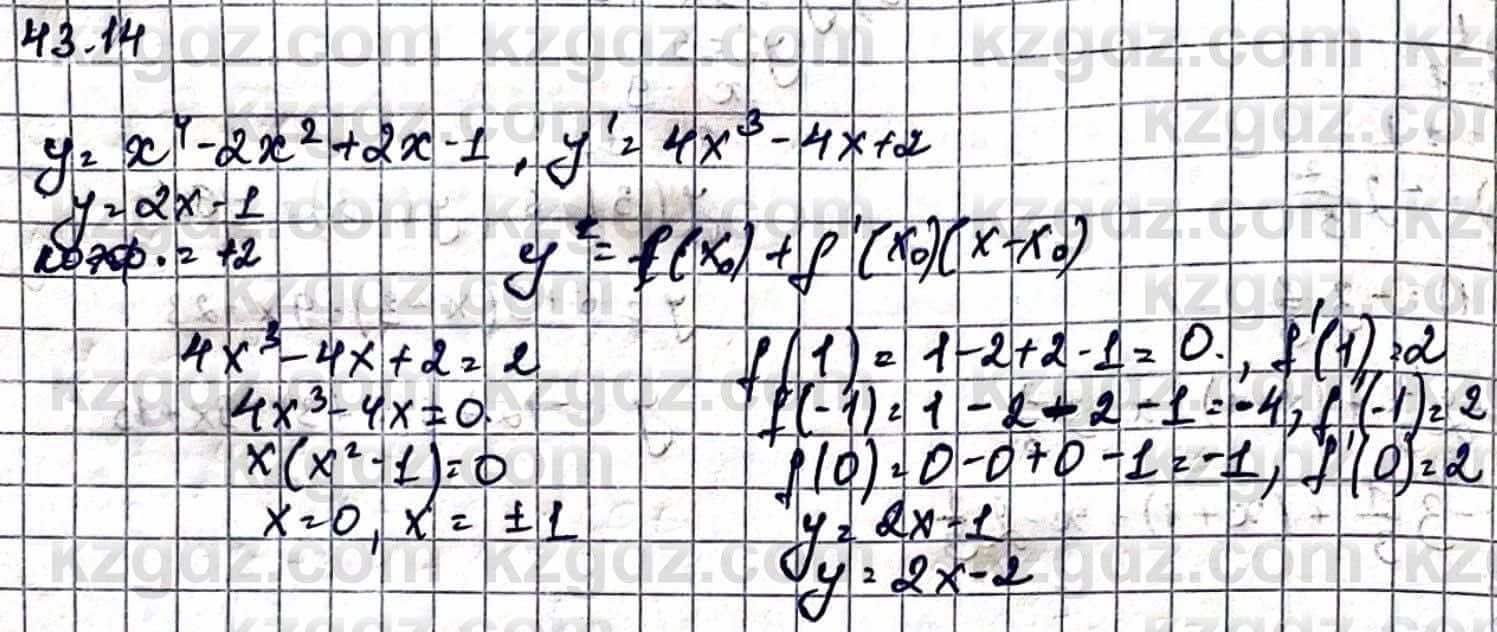 43.14
y = x⁴ - 2x² + 2x - 1, y' = 4x³ - 4x + 2
y = 2x - 1
коэф. = +2
y = f(x₀) + f'(x₀)(x - x₀)
4x³ - 4x + 2 = 2
4x³ - 4x = 0.
x(x² - 1) = 0
x = 0, x = ± 1
f(1) = 1 - 2 + 2 - 1 = 0., f'(1) = 2
f(-1) = 1 - 2 - 2 - 1 = -4, f'(-1) = 2
f(0) = 0 - 0 + 0 - 1 = -1, f'(0) = 2
y = 2x - 1
y = 2x - 2
kzgdz.com